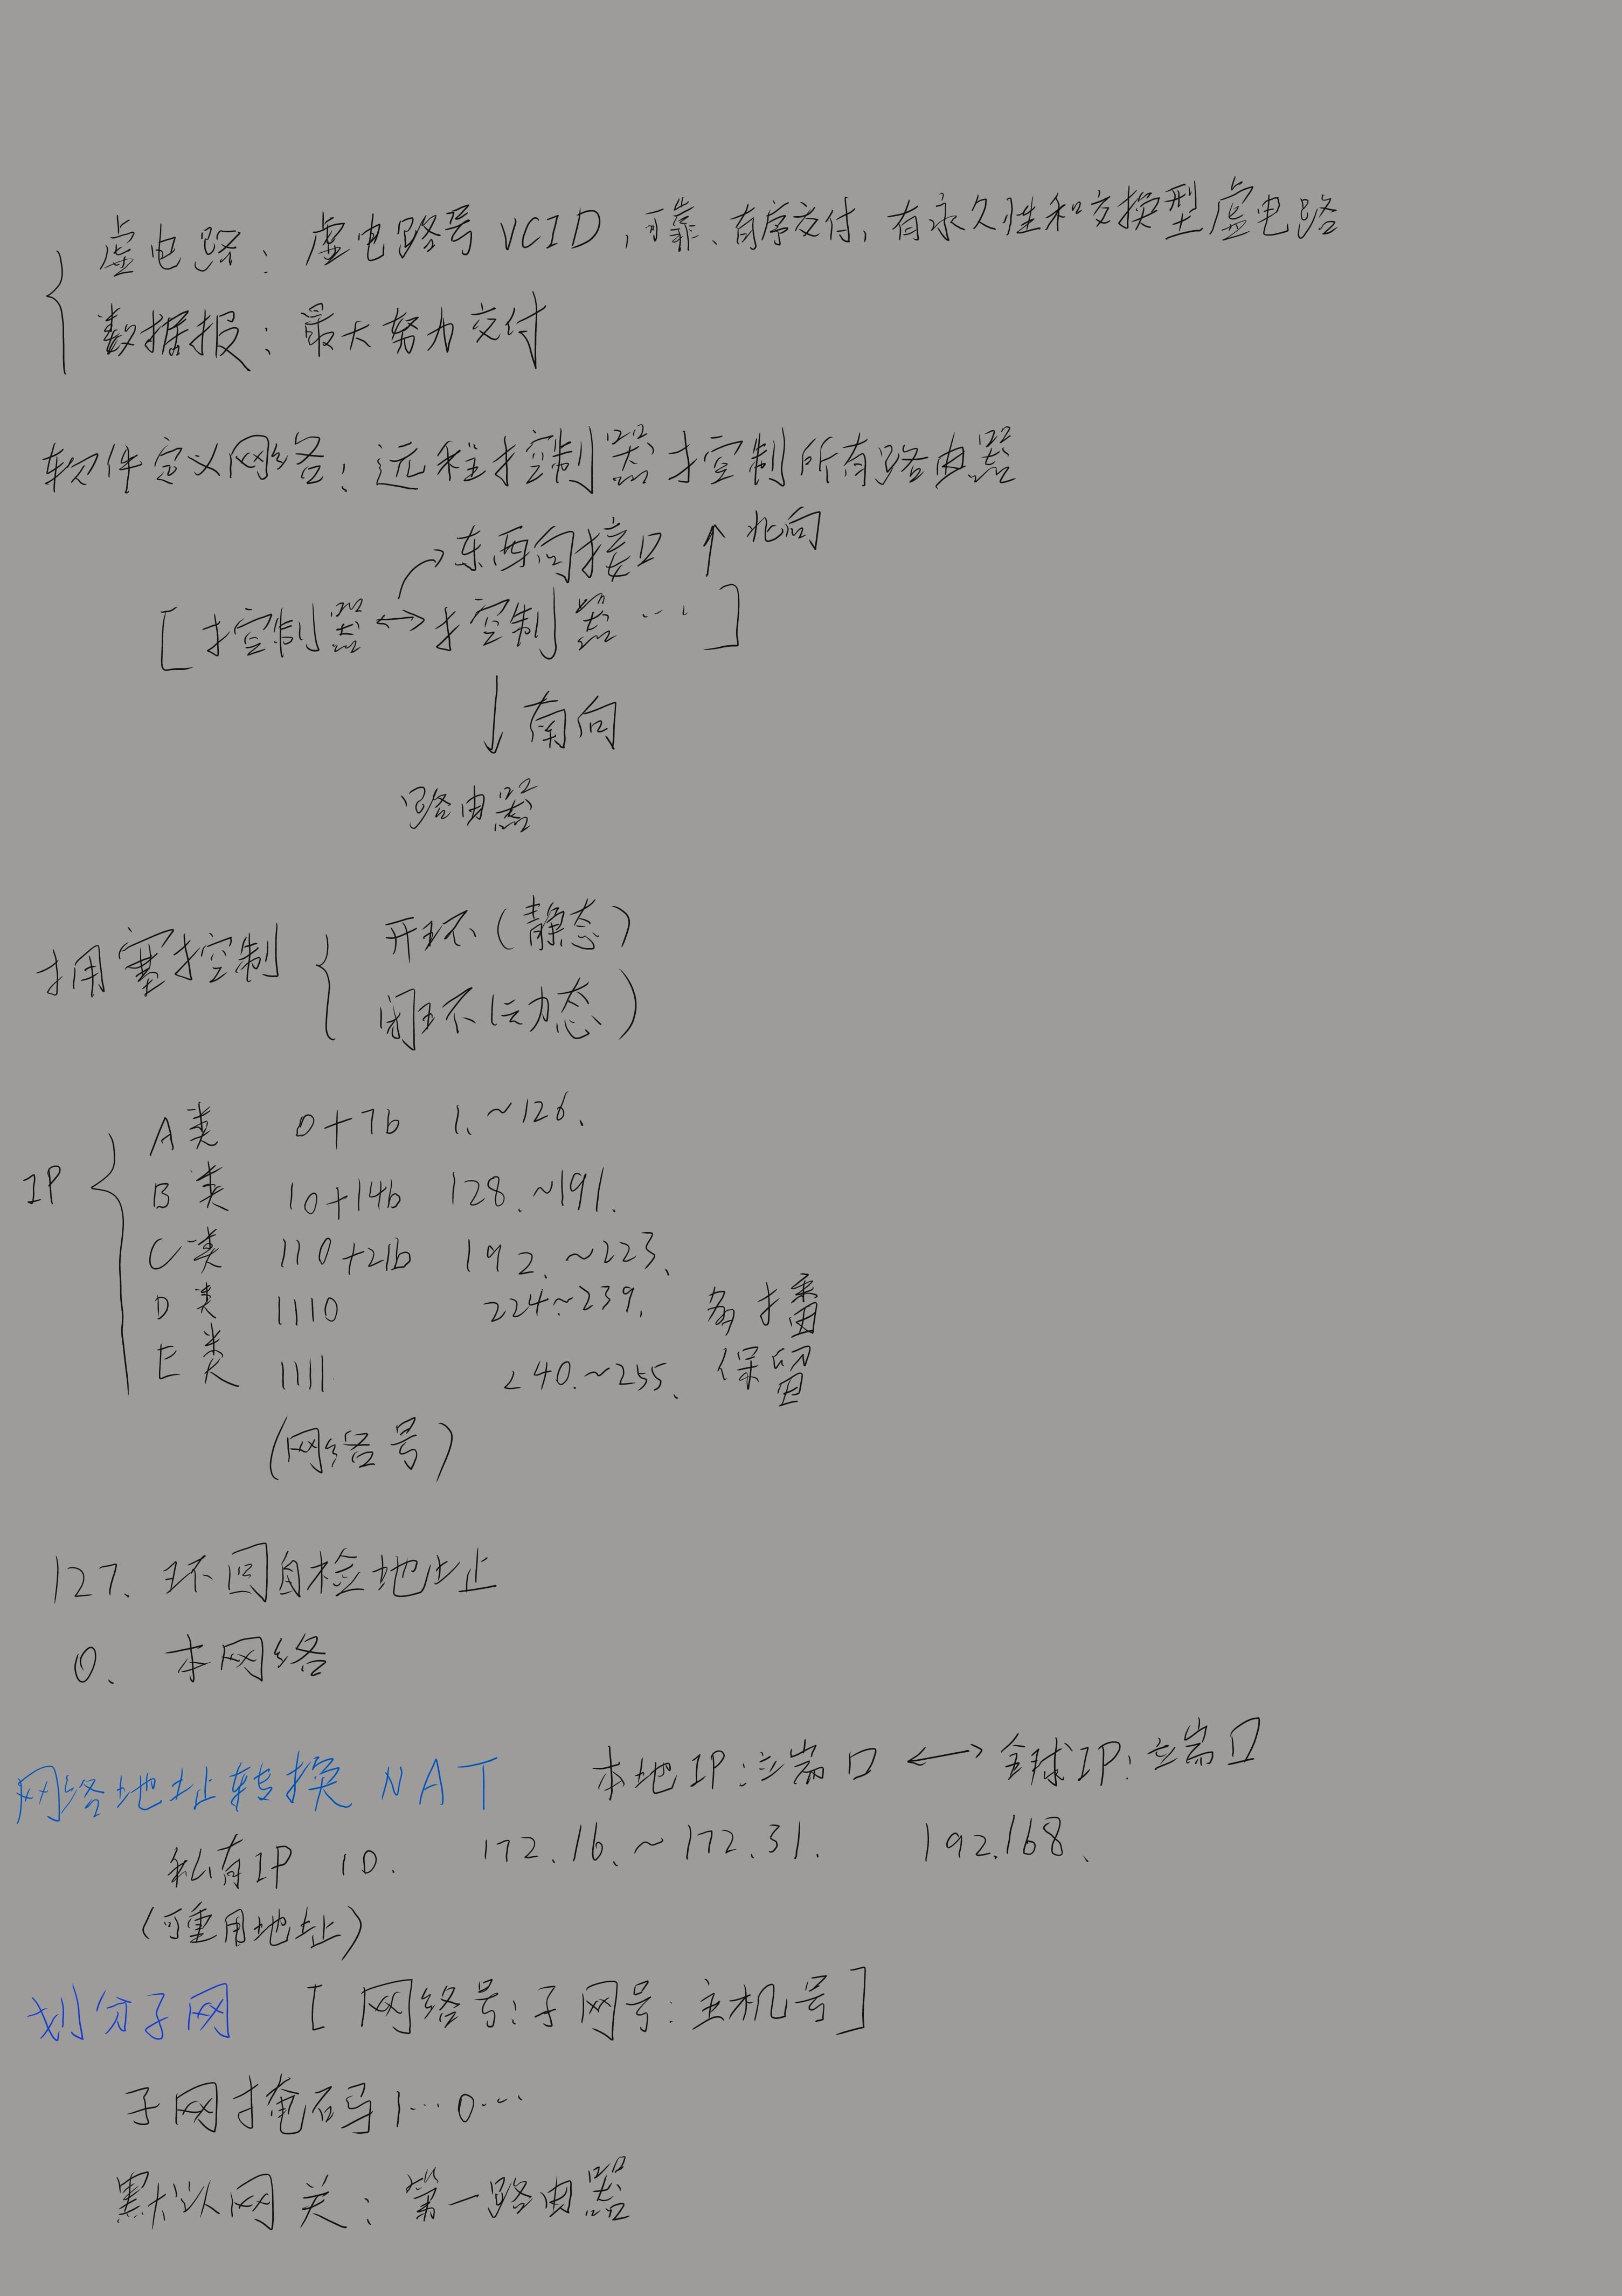 虚电路：虚电路号VCID，可靠、有序交付，有永久性和交换型虚电路
数据报：最大努力交付
软件定义网络：远程控制器控制所有路由器
东西向接口 ↑ 北向
[控制器↔控制器…]
↓南向
路由器
拥塞控制
开环（静态）
闭环（动态）
IP
A类 0+7b 1.~126.
B类 10+14b 128.~191.
C类 110+21b 192.~223.
D类 1110 224.~239. 多播
E类 1111 240.~255. 保留
（网络号）
127. 环回自检地址
0. 本网络
网络地址转换 NAT 本地IP:端口 ↔ 全球IP:端口
私有IP 10. 172.16.~172.31. 192.168.
（可重用地址）
划分子网 [网络号:子网号:主机号]
子网掩码1…0…
默认网关：第一路由器